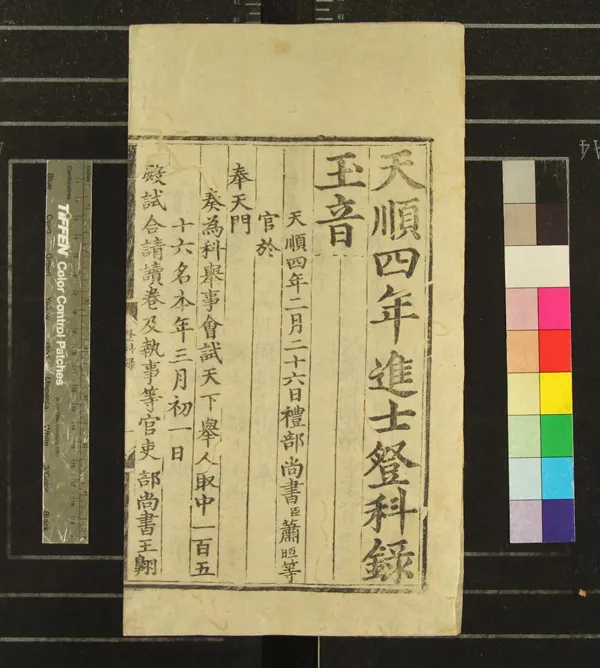 天順四年進士登科録
玉音
天順四年二月二十六日禮部尚書臣蕭晅等
官於
奉天門
奏為科舉事會試天下舉人取中一百五
十六名本年三月初一日
殿試合請讀卷及執事等官吏部尚書王翺
登科録
TIFFEN Color Control Patches
Blue